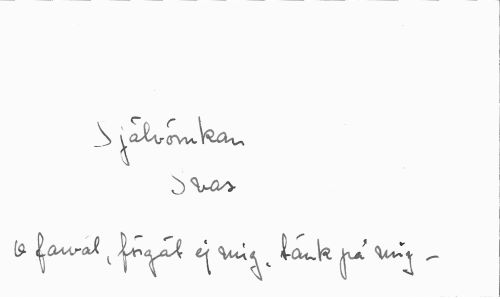 Självömkan
Ivas
O farväl, förgät ej mig, tänk på mig –